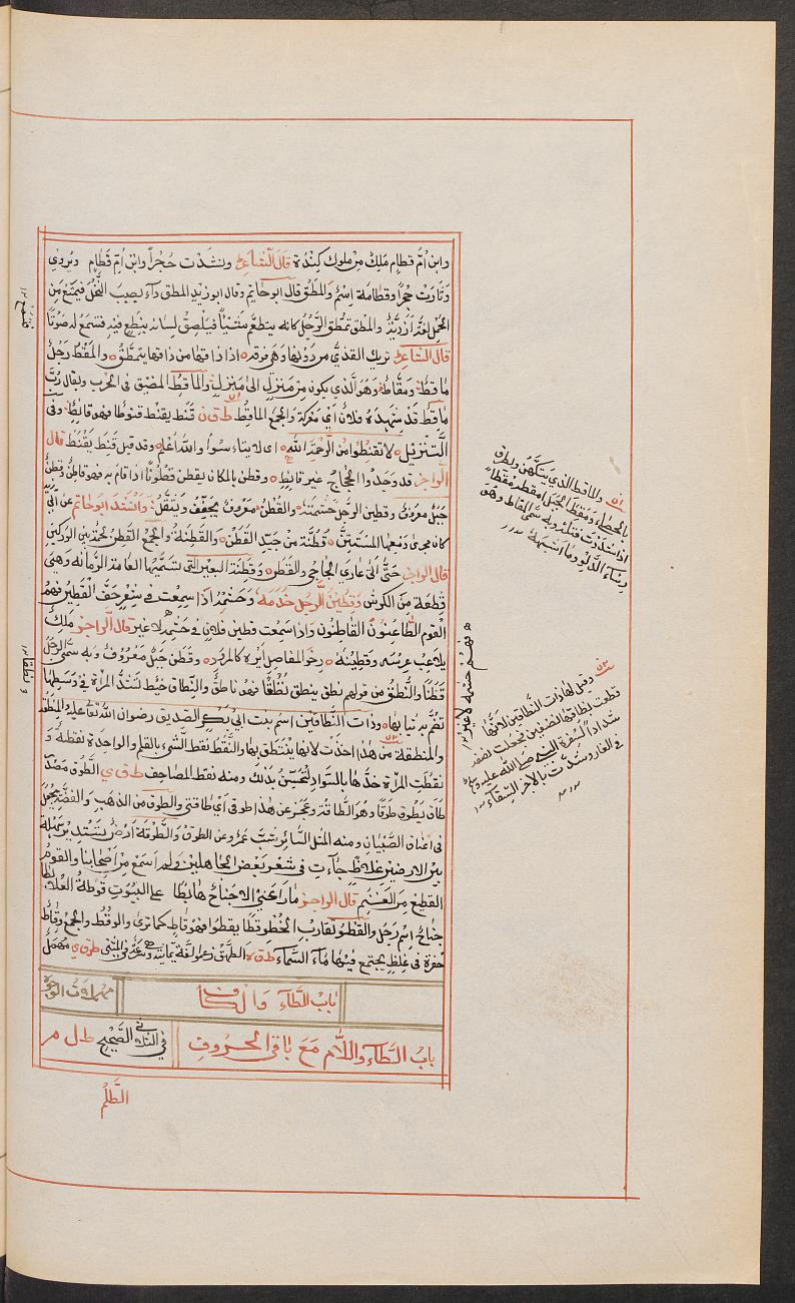 وابن أم قطام ملك من ملوك كندة قال الشاعر ونشدت حجرا وابن أم قطام ويروي
وثارت حجرا وقطامة اسم والمطق قال ابو حاتم وقال ابو زيد المطق داء يصيب النخل فيمتنع من
الحمل لغة ازدية والمطق تمطق الرجل كانه يتطعم شيئا فيلصق لسانه بنطع فيه فتسمع له صوتا
قال الشاعر تريك القذي من دونها وهي فوقه اذا ذاقها من ذاقها يتمطق والمقط رجل
ماقط ومقاط وهو الذي يكون من منزل الى منزل والماقط المضيق في الحرب ويقال رب
ماقط قد شهده فلان اي معركة والجمع المآقط ط ق ن قنط يقنط قنوطا فهو قانط وفي
التنزيل لا تقنطوا من رحمة الله اي لا يتاسوا والله اعلم وقد قيل قنط يقنط قال
الراجز قد وجدوا الحجاج غير قانط وقطن بالمكان يقطن قطونا اذا اقام به فهو قاطن وقطن
جبل معروف وقطين الرجل حشمته والقطن معروف يخفف ويثقل وانشد ابو حاتم عن ابي زيد
كان مجرى دمعها المستن قطنة من جيد القطن والقطنة والجمع القطن لحمة بين الوركين
قال الراجز حتى اتى عاري الجآجي والقطن وقطنة البعير التي تسميها العامة الرمانة وهي
قطعة من الكرش وقطين الرجل خدمه وحشمه اذا سمعت في شعر خف القطين فهم
القوم الظاعنون القاطنون واذا سمعت قطين فلان فهم حشمه لا غير قال الراجز ملك
يلاعب عرسه وقطينه رخو المفاصل ايره كالمرود وقطن جبل معروف وبه سمى الرجل
قطنا والنطق من قولهم نطق ينطق نطقا فهو ناطق والنطاق خيط تشد المرأة في وسطها
تضم به ثيابها وذات النطاقين اسم بنت ابي بكر الصديق رضوان الله تعا عليه والمنطق
والمنطقة من هذا اخذت لانها ينتطق بها والنقط نقط الشيء بالقلم والواحدة نقطة و
نقطت المرأة خدها بالسواد لتحسن بذلك ومنه نقط المصاحف ط ق و الطوق مصدر
طاق يطوق طوقا وهو الطاقة وعجز عن هذا طوقي اي طاقتي والطوق من الذهب والفضة يجعل
في اعناق الصبيان ومنه المثل السائر شب عمرو عن الطوق والطوقة ارض تستدير سهلة
بين الارضين غلاظ جاءت في شعر بعض الجاهليين ولم اسمع من اصحابنا والقوط
القطيع من الغنم قال الراجز ما راعني الا جناح هابطا على البيوت قوطه العلابطا
جناح اسم رجل والقطو تقارب الخطو قطا يقطوا فهو قاط كما ترى والوقط والجمع وقاط
حفرة في غلظ يجتمع فيها ماء السماء ط ق ه الطهق زعموا لغة يمانية وهي سرعة في المشي ط ق ي مهمل
باب الطاء والكاف
مهملات الوجوه
باب الطاء واللام مع باقي الحروف
في الثلاثي الصحيح ط ل م
الطلم
والماقط الذي يتكهن ويطرق
بالحصا ومقط الحبل امقطه مقطا
اذا شددت فتله وبه سمى المقاط وهو
رشاء الدلو وما اشبهه
فهم حشمه لا غير
وقيل لها ذات النطاقين لانها
قطعت نطاقها نصفين فجعلت نصفه
شدادا لسفرة النبي صلى الله عليه وسلم
في الغار وشدت بالآخر السقاء